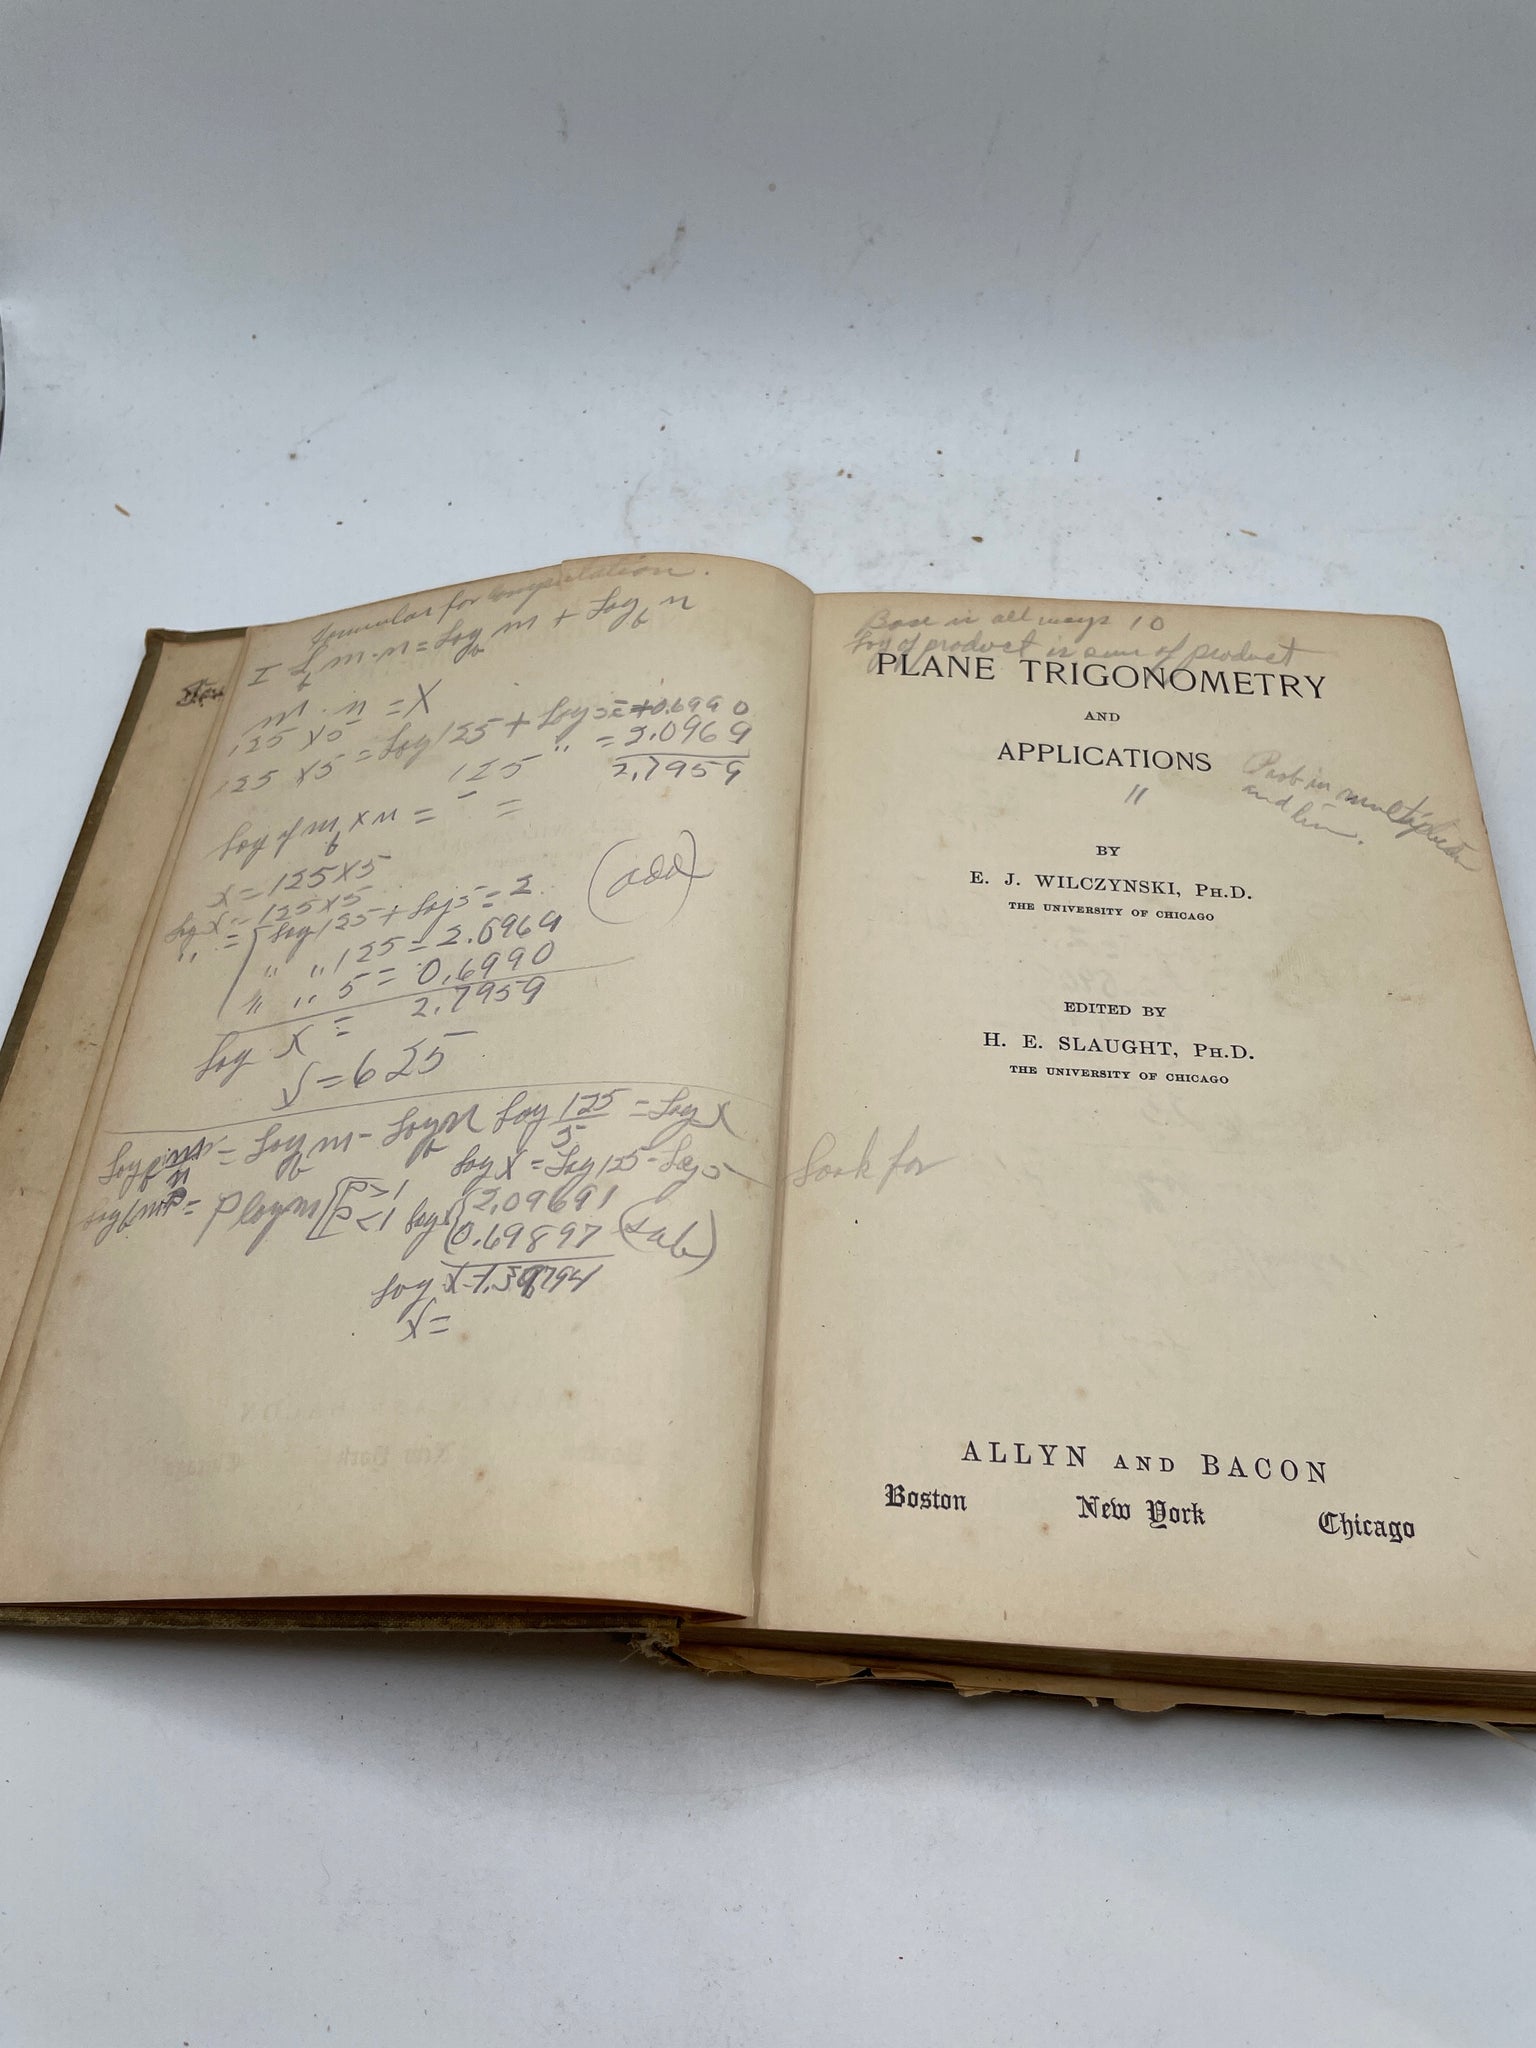 Formular for computation.
I Log_b m·n = Log_b m + Log_b n
m · n = X
125 X 5
125 X 5 = Log 125 + Log 5 = +0.6990
125 " = 2.0969
2.7959
Log of m_b x n = =
X = 125 X 5
Log X = 125 X 5
" = Log 125 + Log 5 = 2
(add)
" " 125 = 2.0969
" " 5 = 0.6990
Log X = 2.7959
X = 625
= Log_b m - Log_b n Log 125/5 = Log X
Log X = Log 125 - Log 5
= p log m [p > 1 Log X { 2.09691
p < 1 0.69897 (sub)
Log X
X =
Base is all ways 10
Log of product is sum of product
PLANE TRIGONOMETRY
AND
APPLICATIONS
"
Prob in
and
BY
E. J. WILCZYNSKI, PH.D.
THE UNIVERSITY OF CHICAGO
EDITED BY
H. E. SLAUGHT, PH.D.
THE UNIVERSITY OF CHICAGO
Look for
ALLYN AND BACON
Boston New York Chicago